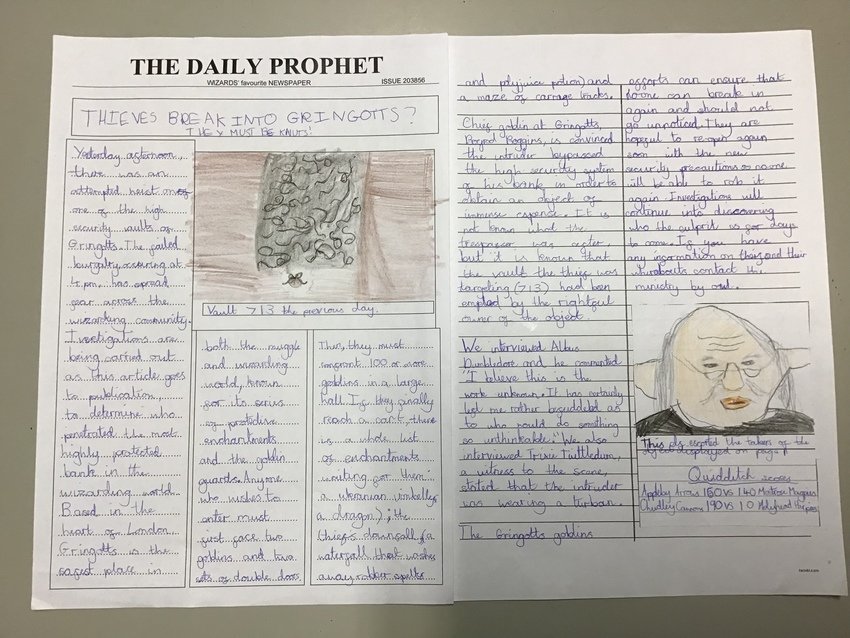 THE DAILY PROPHET
WIZARDS' favourite NEWSPAPER
ISSUE 203856
THIEVES BREAK INTO GRINGOTTS?
THEY MUST BE KNUTS!
Yesterday afternoon,
there was an
attempted heist on
one of the high
security vaults of
Gringotts. The failed
burgalry, occuring at
4pm, has spread
fear across the
wizarding community.
Investigations are
being carried out
as this article goes
to publication,
to determine who
penetrated the most
highly protected
bank in the
wizarding world.
Based in the
heart of London,
Gringotts is the
safest place in
Vault 713 the previous day.
both the muggle
and wizarding
world, known
for its
of
enchantments
and the goblin
guards. Anyone
who wishes to
enter must
first face two
goblins and two
sets of double doors
Then, they must
100 or more
goblins in a large
hall. If they finally
reach a cart, there
is a whole list
of enchantments
waiting for them:
a ukranian
(a dragon); the
thiefs downfall (a
waterfall that washes
away robber spells
and polyjuice potion) and
a maze of carriage tricks.
Chief goblin at Gringotts,
Boggins, is convinced
the intruder bypassed
the high security system
of his bank in order to
obtain an object of
immense expense. It is
not known what the
trespasser was after,
but it is known that
the vault the thief was
targeting (713) had been
emptied by the rightful
owner of the object.
We interviewed Albus
Dumbledore and he commented
"I believe this is the
work unknown. It has certainly
left me rather befuddled as
to who would do something
so unthinkable." We also
interviewed Trixie
a witness to the scene,
stated that the intruder
was wearing a turban.
The Gringotts goblins
efforts can ensure that
noone can break in
again and should not
go unnoticed. They are
hopeful to reopen again
soon with the new
security precautions so noone
will be able to rob it
again. Investigations will
continue into discovering
who the culprit is for days
to come. If you have
any information on and their
whereabouts contact the
ministry by owl.
This the takers of the
displayed on page 1
Quidditch scores
Appleby Arrows 150 vs 140 Montrose Magpies
Chudley Cannons 190 vs 10 Holyhead Harpies